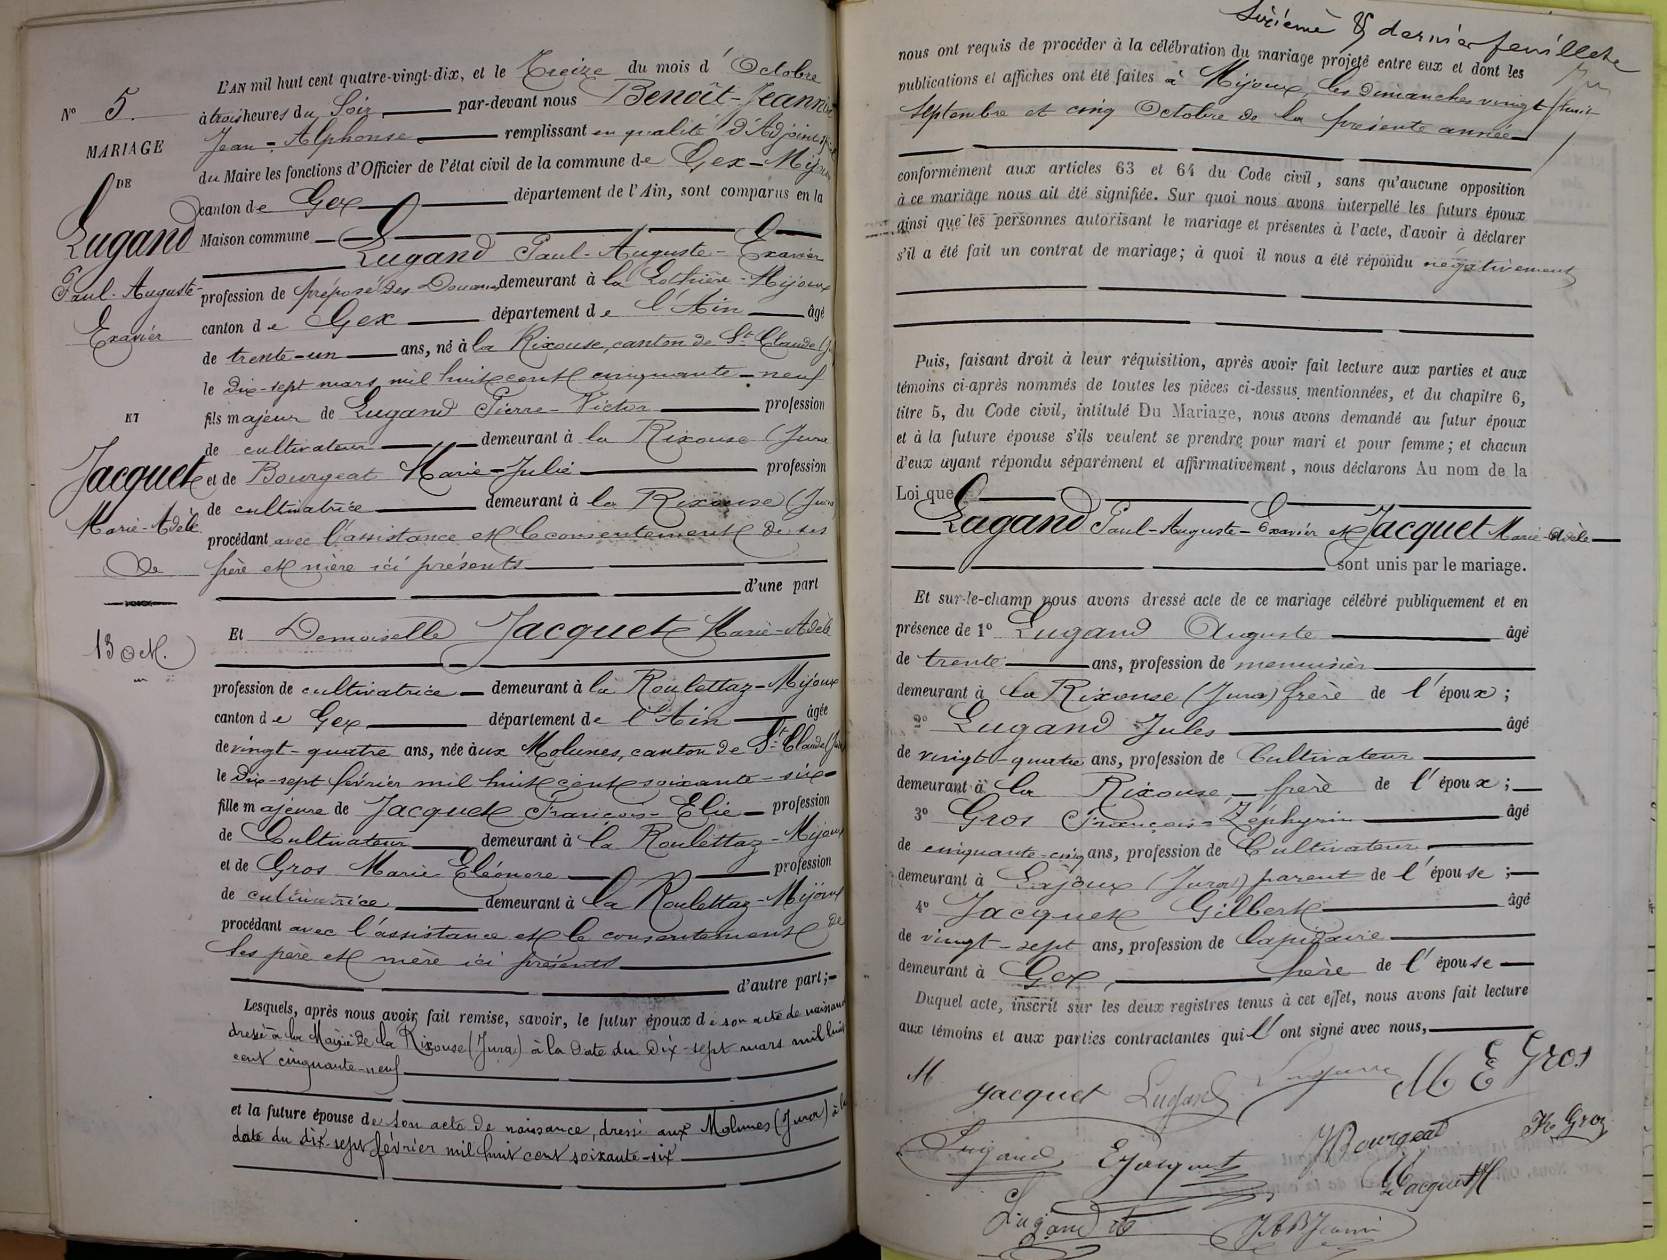 N° 5.
MARIAGE
DE
Lugand
Paul-Auguste-
Exavier
ET
Jacquet
Marie-Adèle
De
13 oct.
L'AN mil huit cent quatre-vingt-dix, et le Treize du mois d'Octobre
à trois heures du Soir, par-devant nous Benoît-Jeannin
Jean-Alphonse remplissant en qualité d'Adjoint
du Maire les fonctions d'Officier de l'état civil de la commune de Gex-Mijoux
canton de Gex département de l'Ain, sont comparus en la
Maison commune
Lugand Paul-Auguste-Exavier
profession de préposé des Douanes demeurant à la -Mijoux
canton de Gex département de l'Ain âgé
de trente-un ans, né à la Rixouse, canton de St Claude (Ju
le dix-sept mars mil huit cent cinquante-neuf
fils majeur de Lugand Pierre-Victor profession
de cultivateur demeurant à la Rixouse (Jura
et de Bourgeat Marie-Julie profession
de cultivatrice demeurant à la Rixouse (Jura
procédant avec l'assistance et le consentement de ses
père et mère ici présents
d'une part
Et Demoiselle Jacquet Marie-Adèle
profession de cultivatrice demeurant à la Roulettaz-Mijoux
canton de Gex département de l'Ain âgée
de vingt-quatre ans, née aux Molunes, canton de St Claude (Jura
le dix-sept février mil huit cent soixante-six
fille majeure de Jacquet François-Elie profession
de Cultivateur demeurant à la Roulettaz-Mijoux
et de Gros Marie Eléonore profession
de cultivatrice demeurant à la Roulettaz-Mijoux
procédant avec l'assistance et le consentement de
ses père et mère ici présents
d'autre part;
Lesquels, après nous avoir fait remise, savoir, le futur époux de son acte de naissance
dressé à la Mairie de la Rixouse (Jura) à la date du dix-sept mars mil huit
cent cinquante-neuf
et la future épouse de son acte de naissance, dressé aux Molunes (Jura) à la
date du dix-sept février mil huit cent soixante-six
Sixième & dernier feuillet
nous ont requis de procéder à la célébration du mariage projeté entre eux et dont les
publications et affiches ont été faites à Mijoux, les dimanches vingt-huit
septembre et cinq Octobre de la présente année
conformément aux articles 63 et 64 du Code civil, sans qu'aucune opposition
à ce mariage nous ait été signifiée. Sur quoi nous avons interpellé les futurs époux
ainsi que les personnes autorisant le mariage et présentes à l'acte, d'avoir à déclarer
s'il a été fait un contrat de mariage; à quoi il nous a été répondu négativement
Puis, faisant droit à leur réquisition, après avoir fait lecture aux parties et aux
témoins ci-après nommés de toutes les pièces ci-dessus mentionnées, et du chapitre 6,
titre 5, du Code civil, intitulé Du Mariage, nous avons demandé au futur époux
et à la future épouse s'ils veulent se prendre pour mari et pour femme; et chacun
d'eux ayant répondu séparément et affirmativement, nous déclarons Au nom de la
Loi que
Lugand Paul-Auguste-Exavier et Jacquet Marie-Adèle
sont unis par le mariage.
Et sur-le-champ nous avons dressé acte de ce mariage célébré publiquement et en
présence de 1° Lugand Auguste âgé
de trente ans, profession de menuisier
demeurant à la Rixouse (Jura) frère de l'époux;
2° Lugand Jules âgé
de vingt-quatre ans, profession de Cultivateur
demeurant à la Rixouse, frère de l'époux;
3° Gros François-Zéphyrin âgé
de cinquante-cinq ans, profession de Cultivateur
demeurant à Lajoux (Jura) parent de l'épouse;
4° Jacquet Gilbert âgé
de vingt-sept ans, profession de lapidaire
demeurant à Gex, frère de l'épouse
Duquel acte, inscrit sur les deux registres tenus à cet effet, nous avons fait lecture
aux témoins et aux parties contractantes qui l'ont signé avec nous,
M Jacquet Lugand M E Gros
Lugand E Jacquet J Bourgeat Fs Gros
Jacquet
Lugand JABJeannin